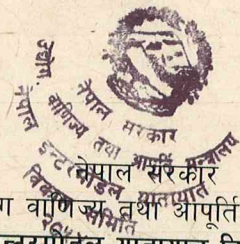 नेपाल सरकार
उद्योग, वाणिज्य तथा आपूर्ति मन्त्रालय
नेपाल इन्टरमोडल यातायात
विकास समिति
नेपाल सरकार
वाणिज्य तथा आपूर्ति
यातायात